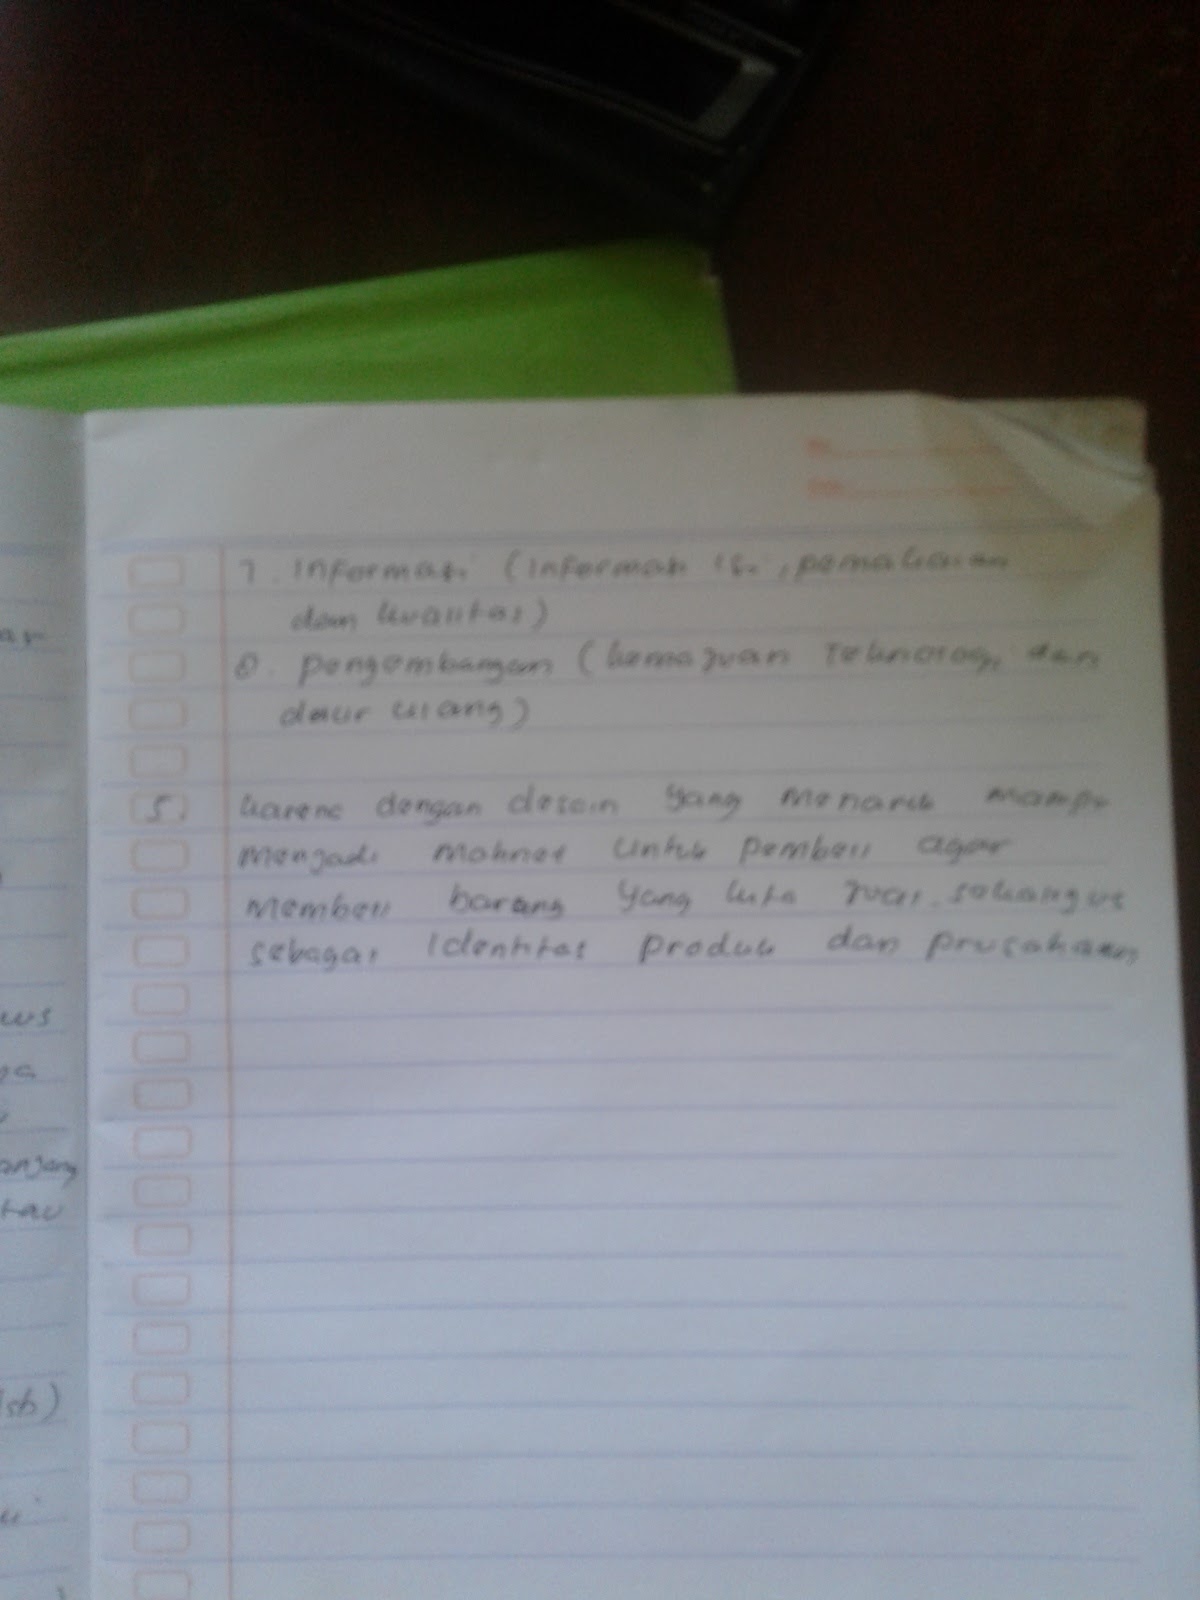 7. Informati (Informati isi, pemakaian
dan kualitas)
8. pengembangan (kemajuan Teknologi dan
daur ulang)
5. karena dengan desain yang menarik mampu
menjadi mahnet untuk pembeli agar
membeli barang yang kita jual. sekaligus
sebagai identitas produk dan prusahaan
ar
ws
anjang
tau
sb)